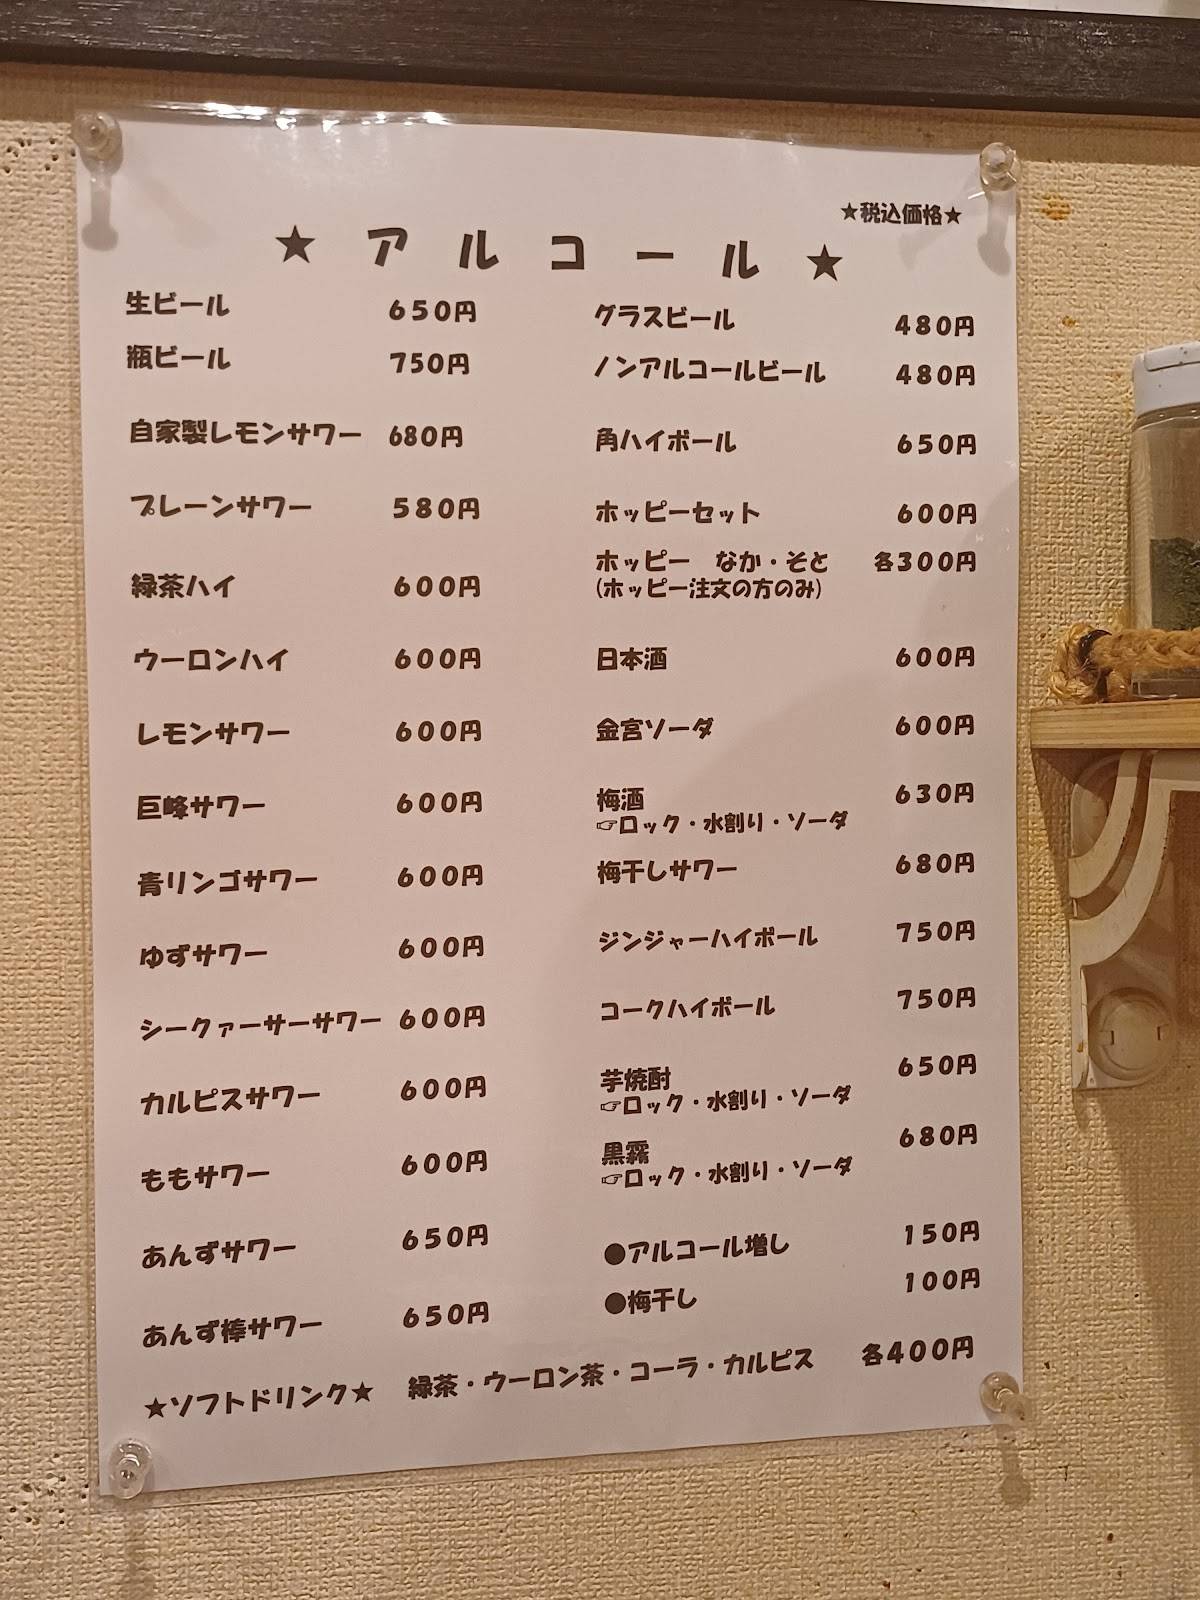 ★税込価格★
★ アルコール ★
生ビール 650円
瓶ビール 750円
自家製レモンサワー 680円
プレーンサワー 580円
緑茶ハイ 600円
ウーロンハイ 600円
レモンサワー 600円
巨峰サワー 600円
青リンゴサワー 600円
ゆずサワー 600円
シークァーサーサワー 600円
カルピスサワー 600円
ももサワー 600円
あんずサワー 650円
あんず棒サワー 650円
グラスビール 480円
ノンアルコールビール 480円
角ハイボール 650円
ホッピーセット 600円
ホッピー なか・そと 各300円
(ホッピー注文の方のみ)
日本酒 600円
金宮ソーダ 600円
梅酒 630円
☞ロック・水割り・ソーダ
梅干しサワー 680円
ジンジャーハイボール 750円
コークハイボール 750円
芋焼酎 650円
☞ロック・水割り・ソーダ
黒霧 680円
☞ロック・水割り・ソーダ
●アルコール増し 150円
●梅干し 100円
★ソフトドリンク★ 緑茶・ウーロン茶・コーラ・カルピス 各400円